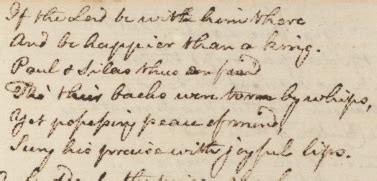 If the Lord be with him there
And be happier than a king.
Paul & Silas thus confined
Tho' their backs were torn by whips,
Yet possessing peace of mind
Sung his praise with joyful lips.